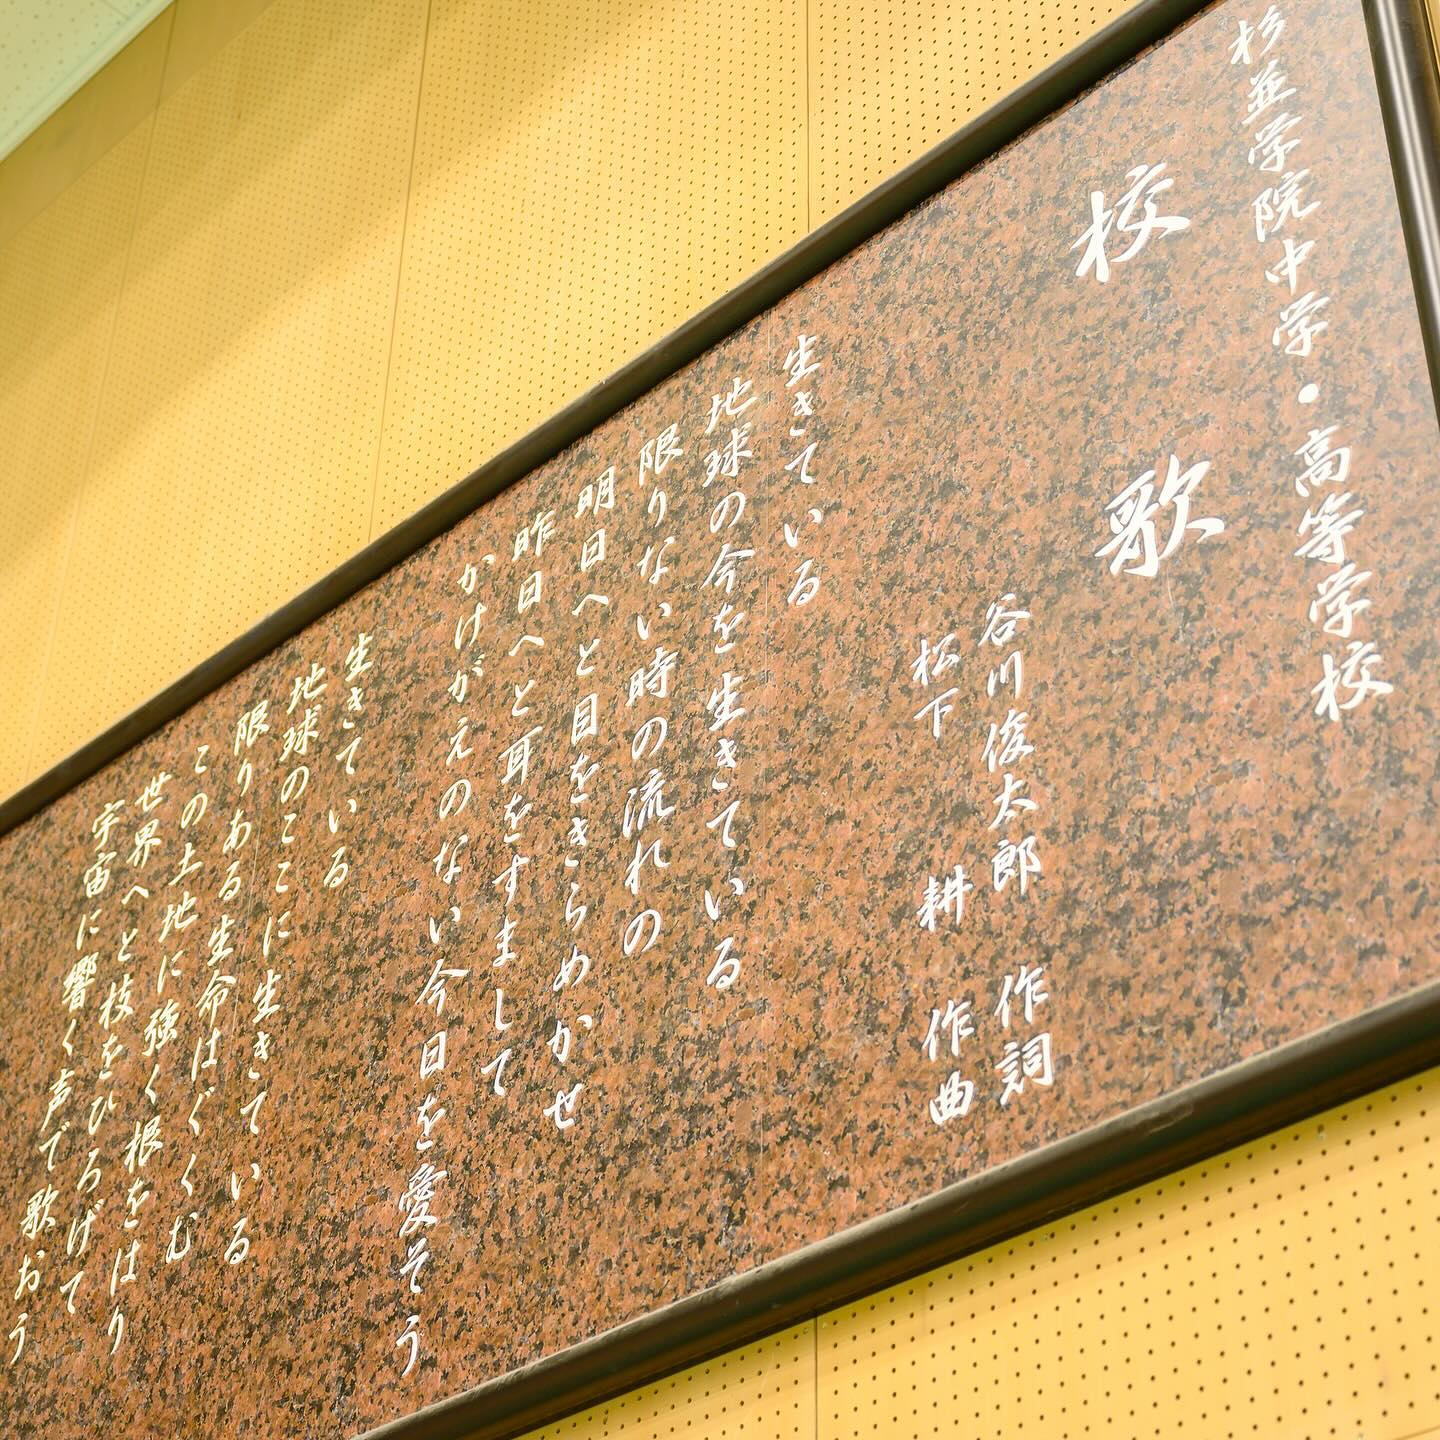 杉並学院中学・高等学校
校歌
谷川俊太郎 作詞
松下 耕 作曲
生きている
地球の今を生きている
限りない時の流れの
明日へと目をきらめかせ
昨日へと耳をすまして
かけがえのない今日を愛そう
生きている
地球のここに生きている
限りある生命はぐくむ
この土地に強く根をはり
世界へと枝をひろげて
宇宙に響く声で歌おう